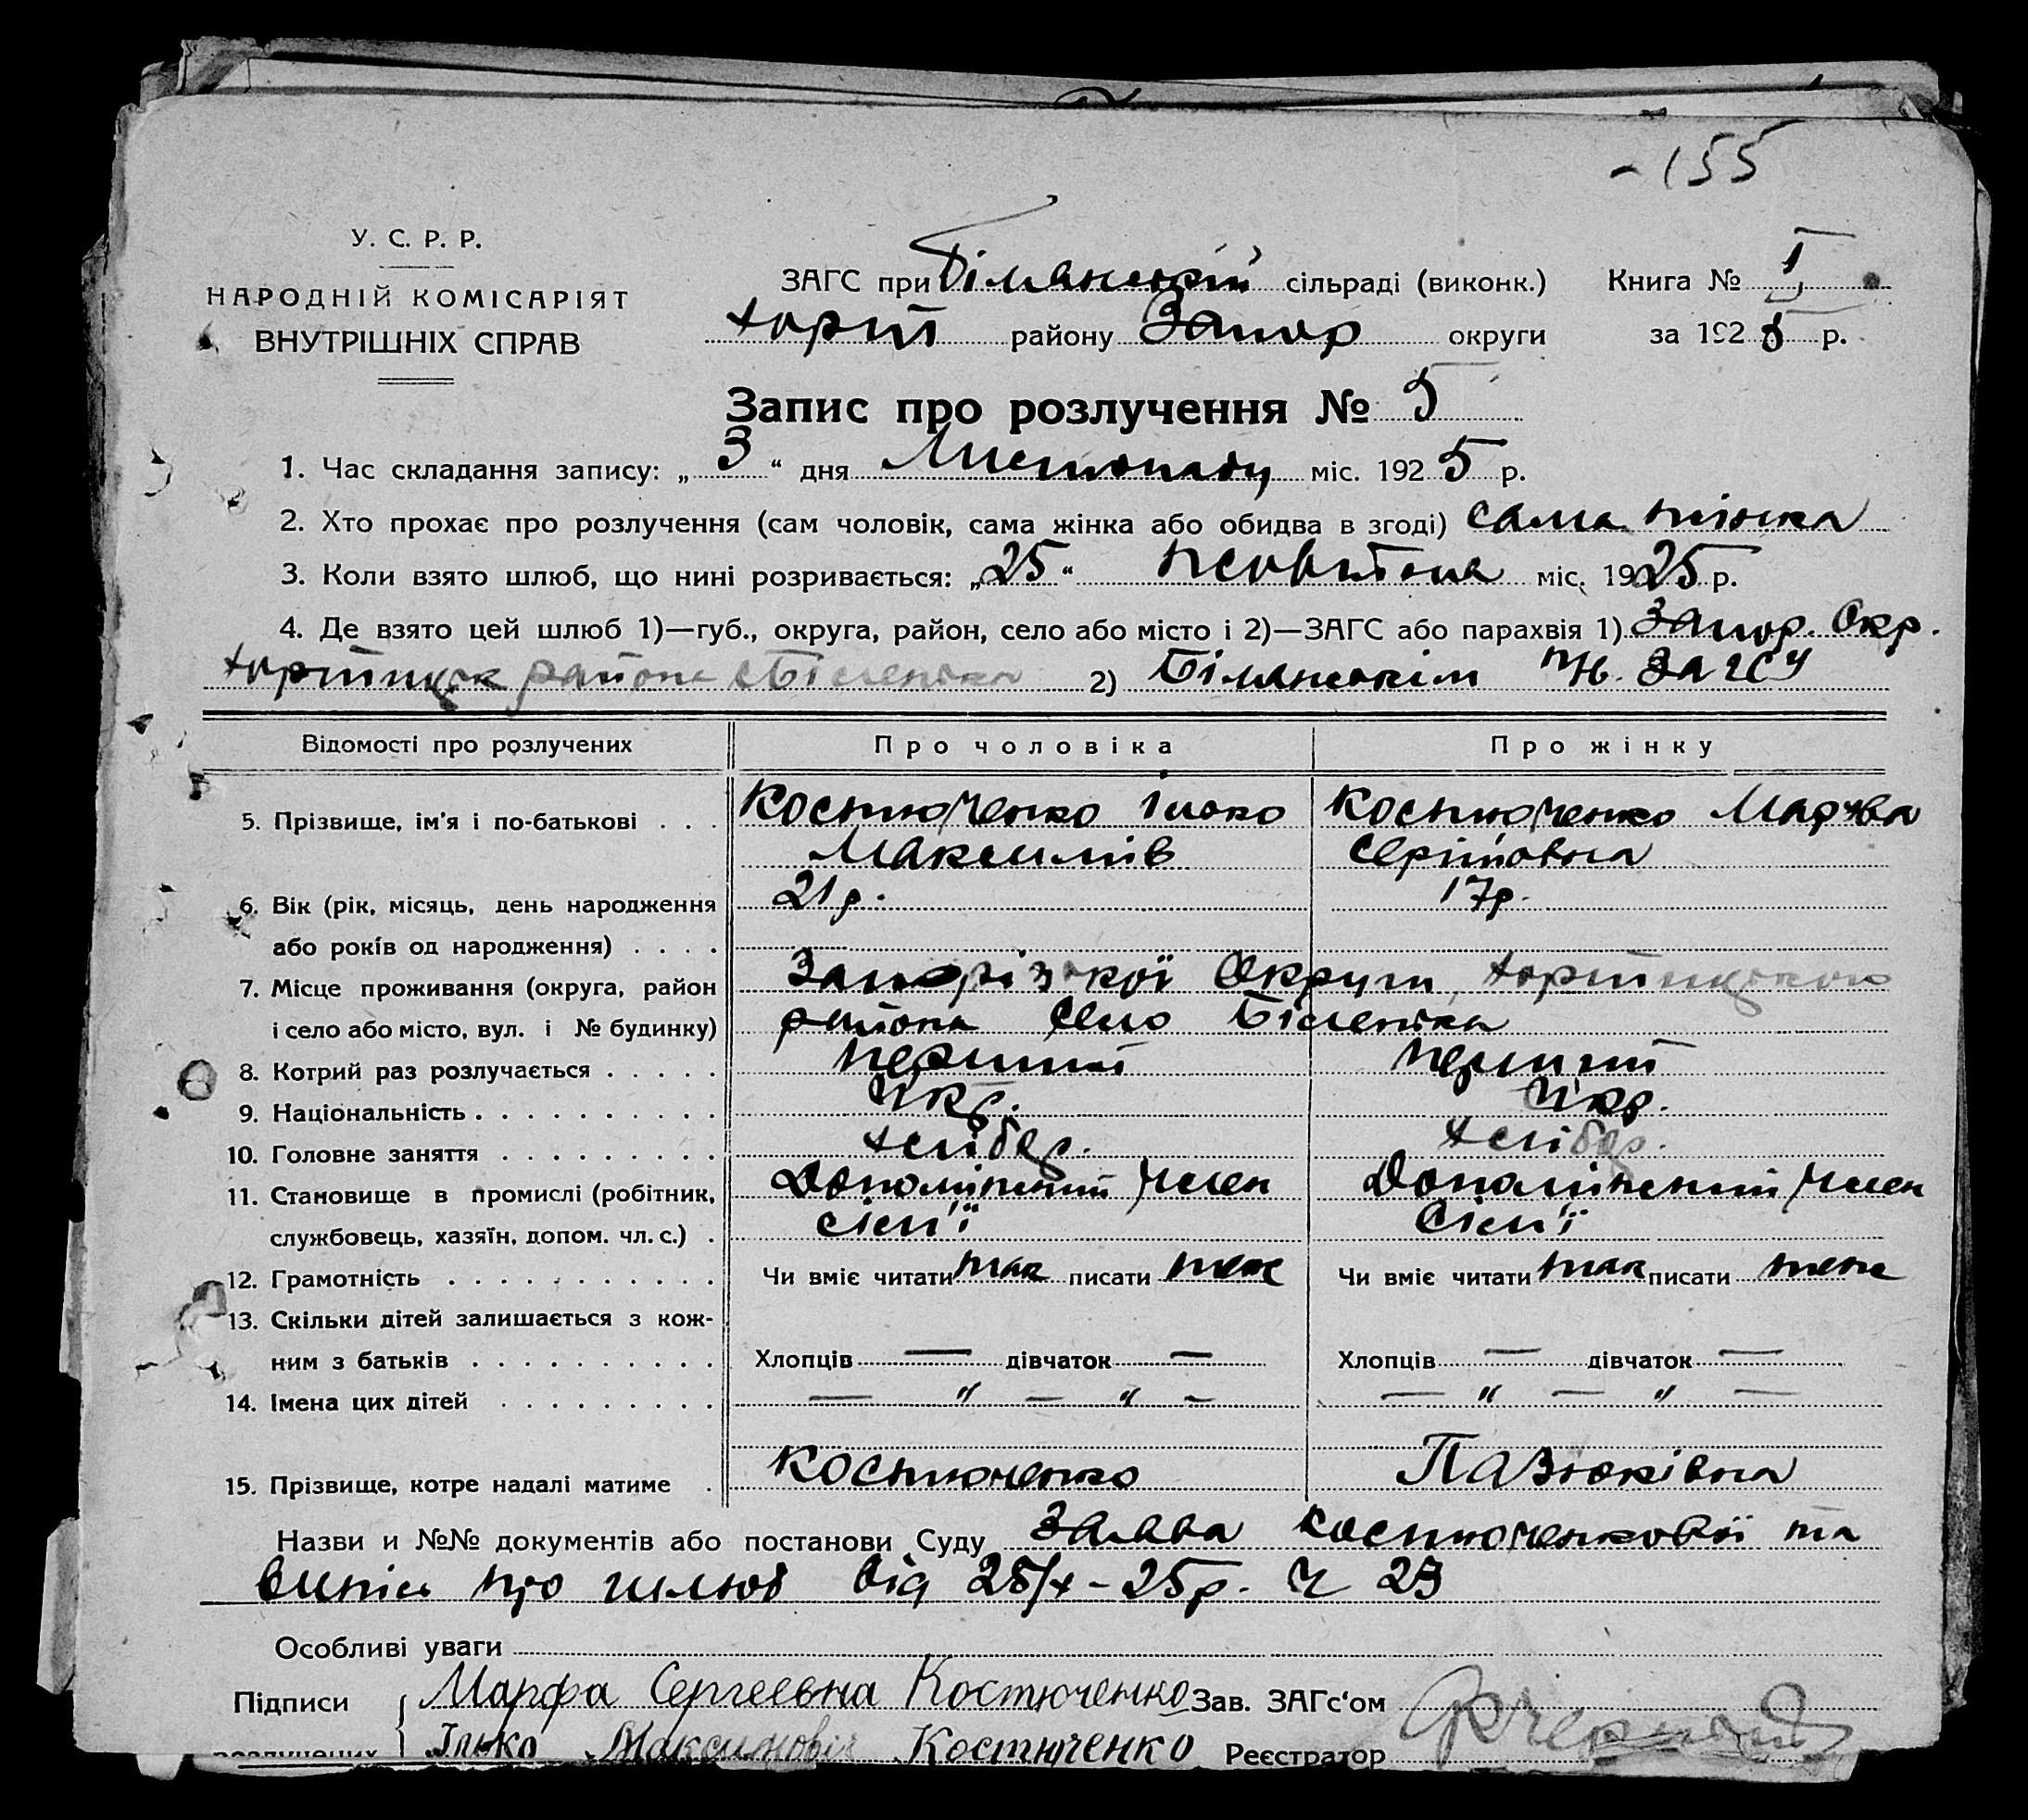 -155
У. С. Р. Р.
НАРОДНІЙ КОМІСАРІЯТ
ВНУТРІШНІХ СПРАВ
ЗАГС при Білянській сільраді (виконк.) Книга № I
Хорт району Запор округи за 1925 р.
Запис про розлучення № 5
1. Час складання запису: „3“ дня Листопаду міс. 1925 р.
2. Хто прохає про розлучення (сам чоловік, сама жінка або обидва в згоді) сама жінка
3. Коли взято шлюб, що нині розривається: „25“ жовтня міс. 1925 р.
4. Де взято цей шлюб 1)—губ., округа, район, село або місто і 2)—ЗАГС або парахвія 1) Запор. Окр.
Хортицьк района с Біленька 2) Білянскім ЗАГСУ
Відомості про розлучених Про чоловіка Про жінку
5. Прізвище, ім'я і по-батькові . . . Костюченко Ілько Костюченко Мархва
Максимів Сергіївна
6. Вік (рік, місяць, день народження 21 р. 17 р.
або років од народження) . . . .
7. Місце проживання (округа, район Запорізької Округи, Хортицького
і село або місто, вул. і № будинку) района село Біленька
8. Котрий раз розлучається . . . . . перший перший
9. Національність . . . . . . . . . . Укр. Укр.
10. Головне заняття . . . . . . . . . хлібор. хлібор.
11. Становище в промислі (робітник, Допоміжний член Допоміжний член
службовець, хазяїн, допом. чл. с.) . сім'ї сім'ї
12. Грамотність . . . . . . . . . . . Чи вміє читати так писати теж Чи вміє читати так писати теж
13. Скільки дітей залишається з кож-
ним з батьків . . . . . . . . . . Хлопців — дівчаток — Хлопців — дівчаток —
14. Імена цих дітей . . . . . . . . . — " — " — — " — " —
15. Прізвище, котре надалі матиме . Костюченко Пазюківна
Назви и №№ документів або постанови Суду Заява Костюченкової та
випис про шлюб від 25/X-25р. Ч 23
Особливі уваги
Підписи { Марфа Сергеевна Костюченко Зав. ЗАГс'ом
розлучених Ілько Максимовіч Костюченко Реєстратор